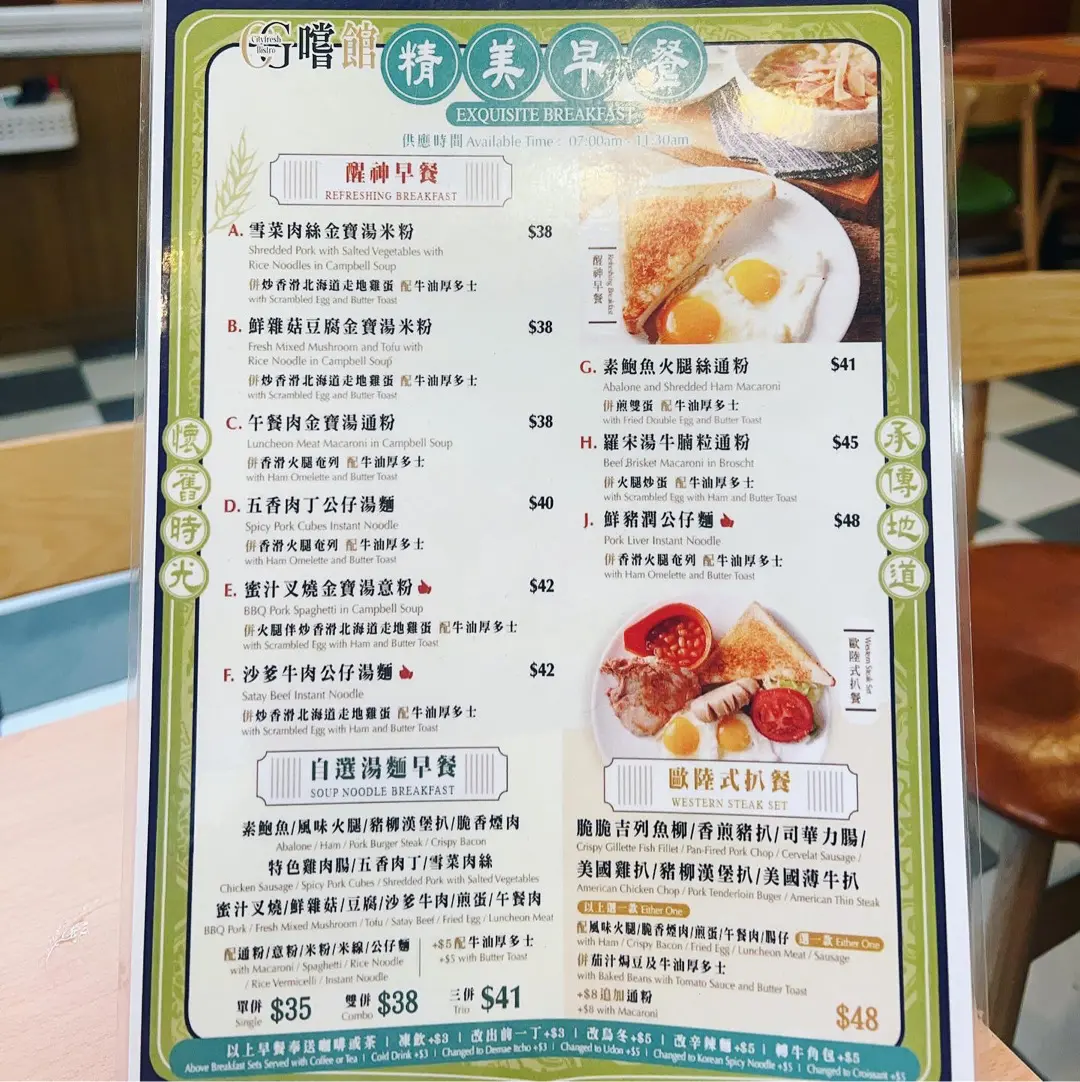 Cityfresh
Bistro
嚐館
精美早餐
EXQUISITE BREAKFAST
供應時間 Available Time : 07:00am - 11:30am
醒神早餐
REFRESHING BREAKFAST
A. 雪菜肉絲金寶湯米粉 $38
Shredded Pork with Salted Vegetables with
Rice Noodles in Campbell Soup
併炒香滑北海道走地雞蛋 配牛油厚多士
with Scrambled Egg and Butter Toast
B. 鮮雜菇豆腐金寶湯米粉 $38
Fresh Mixed Mushroom and Tofu with
Rice Noodle in Campbell Soup
併炒香滑北海道走地雞蛋 配牛油厚多士
with Scrambled Egg and Butter Toast
C. 午餐肉金寶湯通粉 $38
Luncheon Meat Macaroni in Campbell Soup
併香滑火腿奄列 配牛油厚多士
with Ham Omelette and Butter Toast
D. 五香肉丁公仔湯麵 $40
Spicy Pork Cubes Instant Noodle
併香滑火腿奄列 配牛油厚多士
with Ham Omelette and Butter Toast
E. 蜜汁叉燒金寶湯意粉 $42
BBQ Pork Spaghetti in Campbell Soup
併火腿伴炒香滑北海道走地雞蛋 配牛油厚多士
with Scrambled Egg with Ham and Butter Toast
F. 沙爹牛肉公仔湯麵 $42
Satay Beef Instant Noodle
併炒香滑北海道走地雞蛋 配牛油厚多士
with Scrambled Egg with Ham and Butter Toast
Refreshing Breakfast
醒神早餐
G. 素鮑魚火腿絲通粉 $41
Abalone and Shredded Ham Macaroni
併煎雙蛋 配牛油厚多士
with Fried Double Egg and Butter Toast
H. 羅宋湯牛腩粒通粉 $45
Beef Brisket Macaroni in Broscht
併火腿炒蛋 配牛油厚多士
with Scrambled Egg with Ham and Butter Toast
J. 鮮豬潤公仔麵 $48
Pork Liver Instant Noodle
併香滑火腿奄列 配牛油厚多士
with Ham Omelette and Butter Toast
懷舊時光
承傳地道
Western Steak Set
歐陸式扒餐
自選湯麵早餐
SOUP NOODLE BREAKFAST
素鮑魚/風味火腿/豬柳漢堡扒/脆香煙肉
Abalone / Ham / Pork Burger Steak / Crispy Bacon
特色雞肉腸/五香肉丁/雪菜肉絲
Chicken Sausage / Spicy Pork Cubes / Shredded Pork with Salted Vegetables
蜜汁叉燒/鮮雜菇/豆腐/沙爹牛肉/煎蛋/午餐肉
BBQ Pork / Fresh Mixed Mushroom / Tofu / Satay Beef / Fried Egg / Luncheon Meat
配通粉/意粉/米粉/米線/公仔麵
with Macaroni / Spaghetti / Rice Noodle
/ Rice Vermicelli / Instant Noodle
+$5配牛油厚多士
+$5 with Butter Toast
單併 Single $35 雙併 Combo $38 三併 Trio $41
歐陸式扒餐
WESTERN STEAK SET
脆脆吉列魚柳/香煎豬扒/司華力腸/
Crispy Gillette Fish Fillet / Pan-Fired Pork Chop / Cervelat Sausage /
美國雞扒/豬柳漢堡扒/美國薄牛扒
American Chicken Chop / Pork Tenderloin Buger / American Thin Steak
以上選一款 Either One
配風味火腿/脆香煙肉/煎蛋/午餐肉/腸仔 選一款 Either One
with Ham / Crispy Bacon / Fried Egg / Luncheon Meat / Sausage
併茄汁焗豆及牛油厚多士
with Baked Beans with Tomato Sauce and Butter Toast
+$8追加通粉
+$8 with Macaroni
$48
以上早餐奉送咖啡或茶 | 凍飲+$3 | 改出前一丁+$3 | 改烏冬+$5 | 改辛辣麵+$5 | 轉牛角包+$5
Above Breakfast Sets Served with Coffee or Tea | Cold Drink +$3 | Changed to Demae Itcho +$3 | Changed to Udon +$5 | Changed to Korean Spicy Noodle +$5 | Changed to Croissant +$5